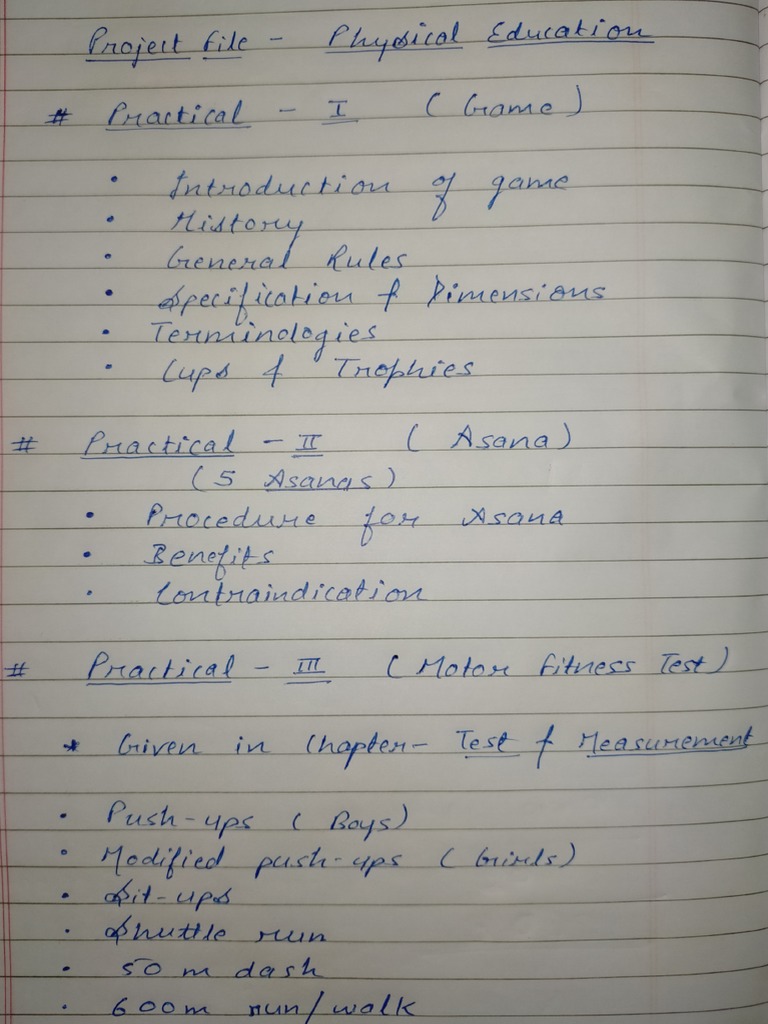 Project File - Physical Education
# Practical - I (Game)
• Introduction of game
• History
• General Rules
• Specification & Dimensions
• Terminologies
• Cups & Trophies
# Practical - II (Asana)
(5 Asanas)
• Procedure for Asana
• Benefits
• Contraindication
# Practical - III (Motor Fitness Test)
* Given in Chapter- Test & Measurement
• Push-ups (Boys)
• Modified push-ups (Girls)
• Sit-ups
• Shuttle run
• 50 m dash
• 600m run/walk